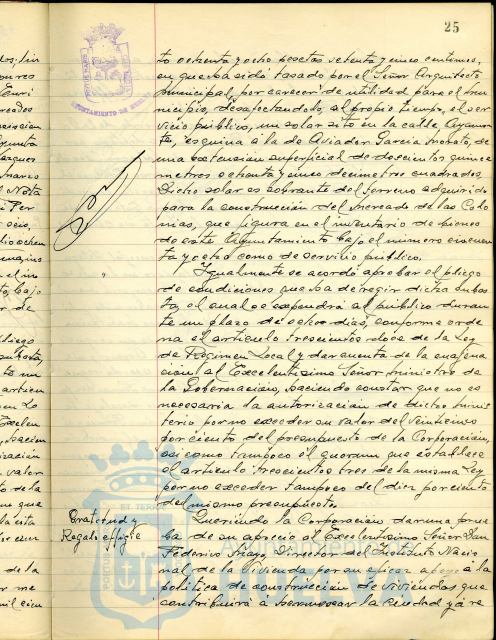 25
to ochenta y ocho pesetas setenta y cinco centimos,
en que ha sido tasado por el Señor Arquitecto
municipal, por carecer de utilidad para el mu
nicipio, desafectandolo, al propio tiempo, el ser
vicio público, un solar sito en la calle Ayamon
te, esquina a la de Aviador García Morato, de
una extension superficial de doscientos quince
metros ochenta y cinco decimetros cuadrados.
Dicho solar es sobrante del terreno adquirido
para la construcción del Mercado de las Colo
nias, que figura en el inventario de bienes
de este Ayuntamiento bajo el numero cincuen
ta y ocho como de servicio público.
Igualmente se acordó aprobar el pliego
de condiciones que ha de regir dicha subas
ta, el cual se expondrá al público duran
te un plazo de ocho dias, conforme orde
na el artículo trescientos doce de la Ley
de Régimen Local y dar cuenta de la enajena
ción al Excelentísimo Señor Ministro de
la Gobernación, haciendo constar que no es
necesaria la autorización de dicho Minis
terio por no exceder su valor del veinticinco
por ciento del presupuesto de la Corporación,
asi como tampoco el quorum que establece
el artículo trescientos tres de la misma Ley
por no exceder tampoco del diez por ciento
del mismo presupuesto.
Gratitud y
Regalo efigie
Queriendo la Corporación dar una prue
ba de su aprecio al Excelentísimo Señor Don
Federico Mayo, Director del Instituto Nacio
nal de la Vivienda por su eficaz apoyo a la
política de construcción de viviendas que
contribuirá a hermosear la Ciudad y á re